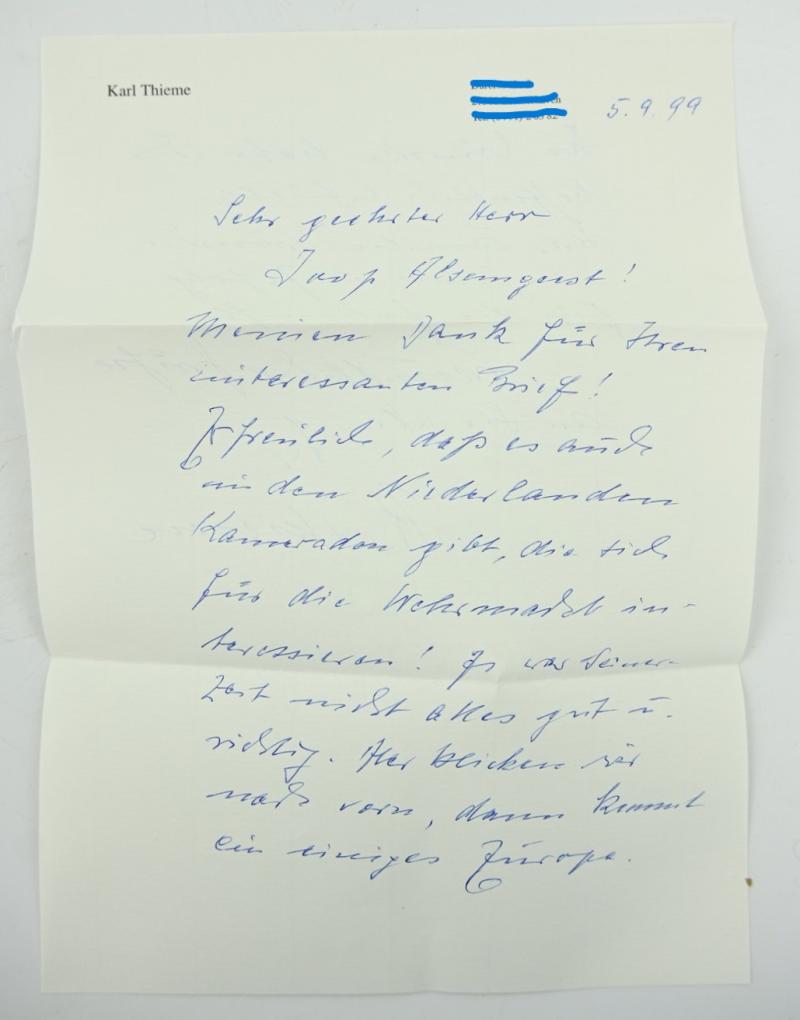 Karl Thieme
5.9.99
Sehr geehrter Herr
Joop Alsemgeest!
Meinen Dank für Ihren
interessanten Brief!
Erfreulich, daß es auch
in den Niederlanden
Kameraden gibt, die sich
für die Wehrmacht in-
teressieren! Es war seiner-
zeit nicht alles gut u.
richtig. Aber blicken wir
nach vorn, dann kommt
ein einiges Europa.